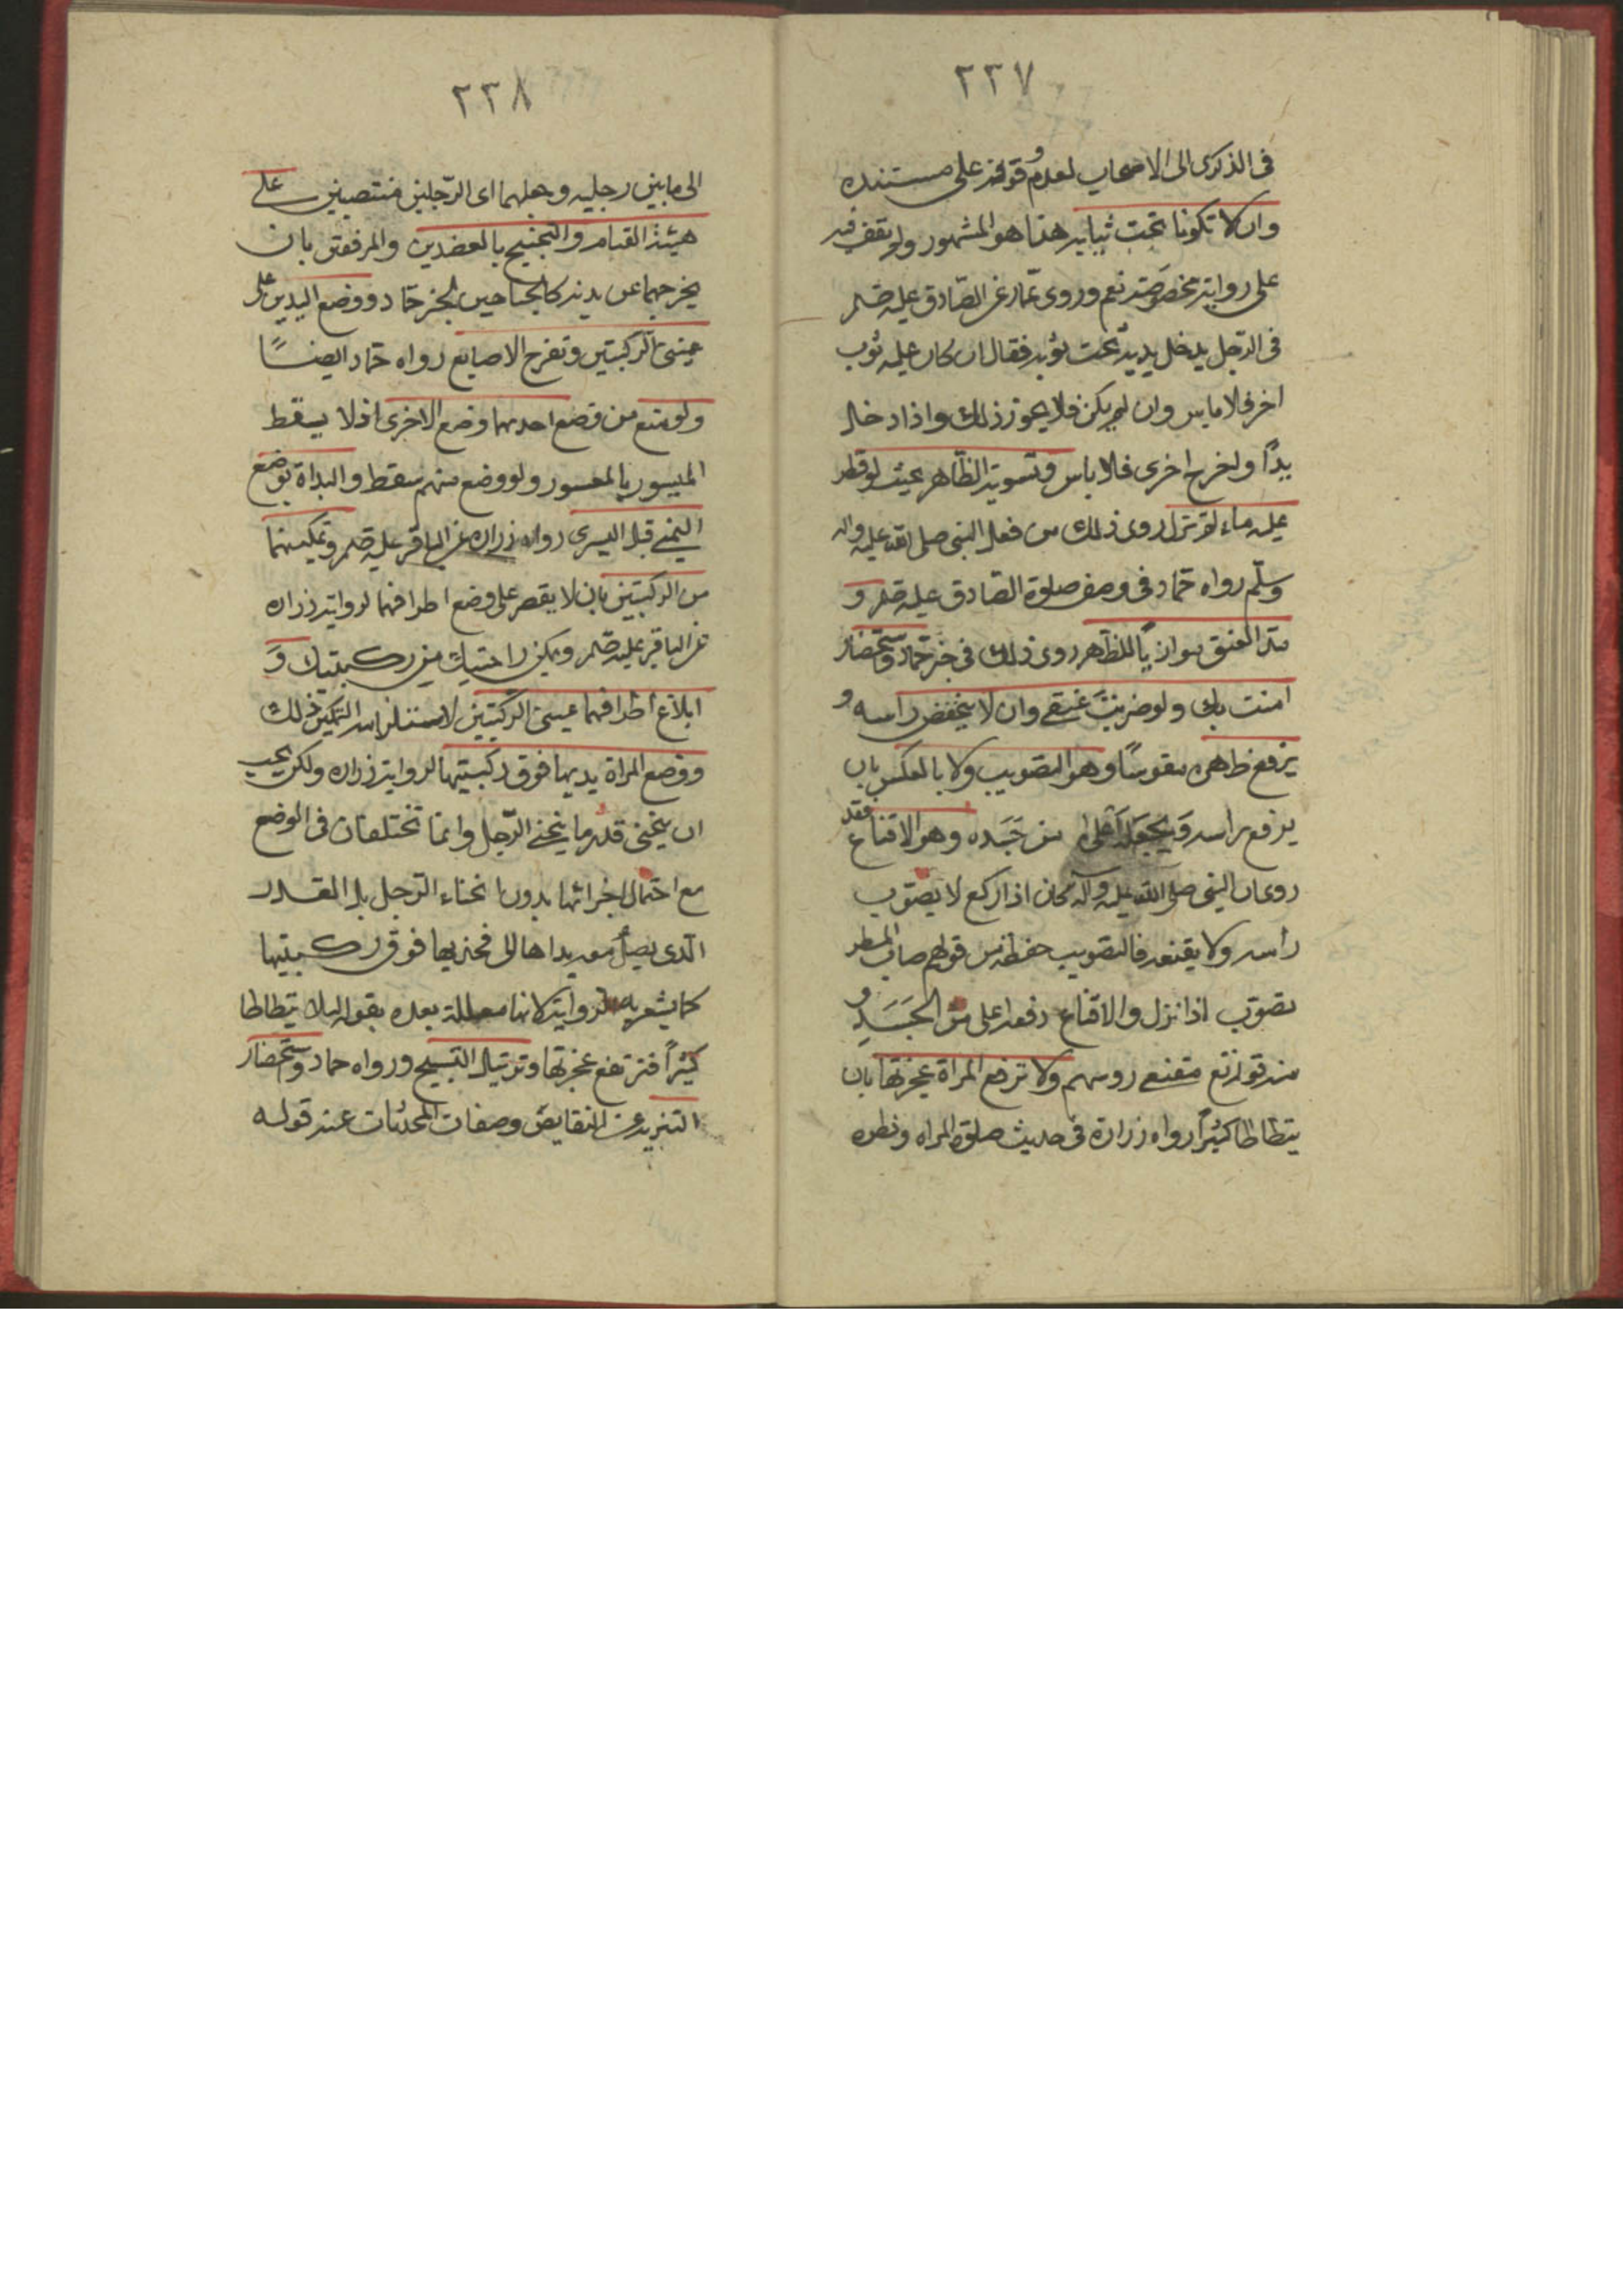 ٢٣٧
فى الذكرى الى الاصحاب لعدم وقوفه على مستنده
وان لا تكونا تحت ثيابه هذا هو المشهور ولم يقف فيه
على رواية تخصوصه نعم وروى عمار عن الصادق عليه السلم
فى الرجل يدخل يديه تحت ثوبه فقال ان كان عليه ثوب
اخر فلا باس وان لم يكن فلا يجوز ذلك واذا دخل
يدًا ولخرج اخرى فلا باس وتسوية الظاهر بحيث لو قطر
عليه ماء لم تزل روى ذلك من فعل النبى صلى الله عليه واله
وسلم رواه حماد فى وصف صلوة الصادق عليه السلم و
مد العنق موازيًا للظهر روى ذلك فى خبر حماد وستحضار
امنت بك ولو ضربت عنقى وان لا يخفض راسه و
يرفع ظهره مقوسًا وهو التصويب ولا بالعكس بان
يرفع راسه ويجعله اعلى من جسده وهو الاقناع فقد
روى ان النبى صلى الله عليه وآله كان اذا ركع لا يصوب
راسه ولا يقنعه فالتصويب حفظه من قولهم صاب المطر
تصوب اذا نزل والاقناع رفعه اعلى من الجسد و
منه قوله تع مقنعى روسهم ولا ترفع المراة عجزتها بان
يتطاطا كثيرًا رواه زرارة فى حديث صلوة المراه ونظره
٢٣٨
الى ما بين رجليه وجعلهما اى الرجلين منتصبين على
هيئة القيام والتجنيح بالعضدين والمرفقين بان
يخرجهما عن بدنه كالجناحين لخبر حماد ووضع اليدين على
عينى الركبتين وتفرج الاصابع رواه حماد ايضًا
ولو منع من وضع احديهما وضع الاخرى اذ لا يسقط
الميسور بالمعسور ولو وضع منهم سقط والبداة بوضع
اليمنى قبل اليسرى رواه زراره عن الباقر عليه السلم وتمكينهما
من الركبتين بان لا يقصر على وضع اطرافهما لرواية زراره
عن الباقر عليه السلم ويمكن راحتيك من ركبتيك و
ابلاغ اطرافهما عينى الركبتين لاستلزام التمكين ذلك
ووضع المراة يديها فوق ركبتيها لرواية زراره ولكن يجب
ان ينحنى قدر ما ينحنى الرجل وانما تختلفان فى الوضع
مع احتمال اجزائها بدون انحناء الرجل بل القدر
الذى يصل معه يداها الى فخذيها فوق ركبتيها
كما يشعر به الرواية لانها معللة بعده بقوله لئلا يتطاطا
كثيرًا فترتفع عجزتها وترتيل التسبيح ورواه حماد وستحضار
التنزيه عن النقايص وصفات المحدثات عند قوله